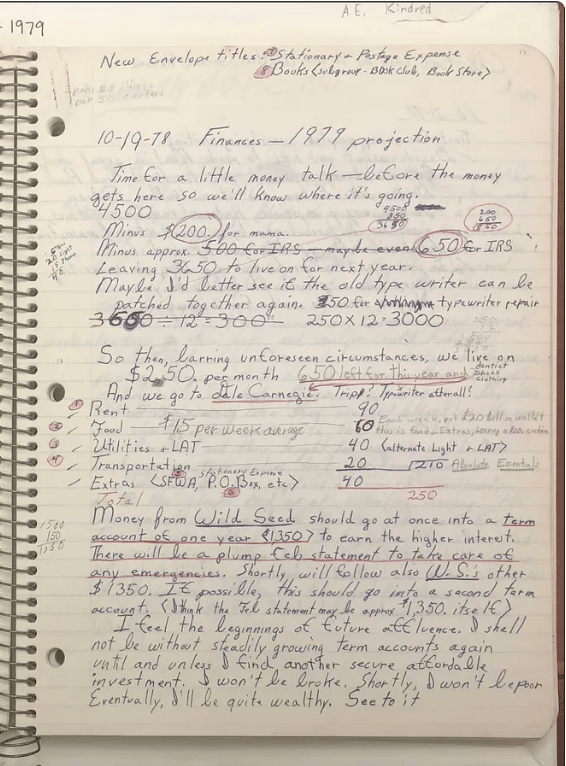 - 1979
A.E. Kindred
New Envelope titles: ⑦ Stationary + Postage Expense
⑧ Books <subgroup - Book Club, Book Store>
10-19-78 Finances — 1979 projection
Time for a little money talk — before the money
gets here so we'll know where it's going.
4500
4500
850
3650
200
650
850
Minus $200. for mama.
Minus approx. 500 for IRS — maybe even 650 for IRS
Leaving 3650 to live on for next year.
Maybe I'd better see if the old type writer can be
patched together again. 250 for typewriter repair
3650 ÷ 12 = 300 250 x 12 = 3000
So then, barring unforeseen circumstances, we live on
$250. per month 650 left for this year and dentist
shoes
clothing
And we go to Dale Carnegie. Trip? Typewriter afterall?
① ✓ Rent 90
② ✓ Food $15 per week average 60 Each week, put $20 bill in wallet
this is food + Extras,
③ ✓ Utilities + LAT 40 <alternate Light + LAT>
④ ✓ Transportation 20 210 Absolute Essentials
Stationary Expense
✓ Extras <SFWA, P.O. Box, etc> 40
⑤
⑥
Total 250
1500
150
Money from Wild Seed should go at once into a term
account of one year <1350> to earn the higher interest.
There will be a plump Feb statement to take care of
any emergencies. Shortly, will follow also W.S.'s other
$1350. If possible, this should go into a second term
account. <I think the Feb statement may be approx $1,350. itself>
I feel the beginnings of future affluence. I shall
not be without steadily growing term accounts again
until and unless I find another secure affordable
investment. I won't be broke. Shortly, I won't be poor
Eventually, I'll be quite wealthy. See to it